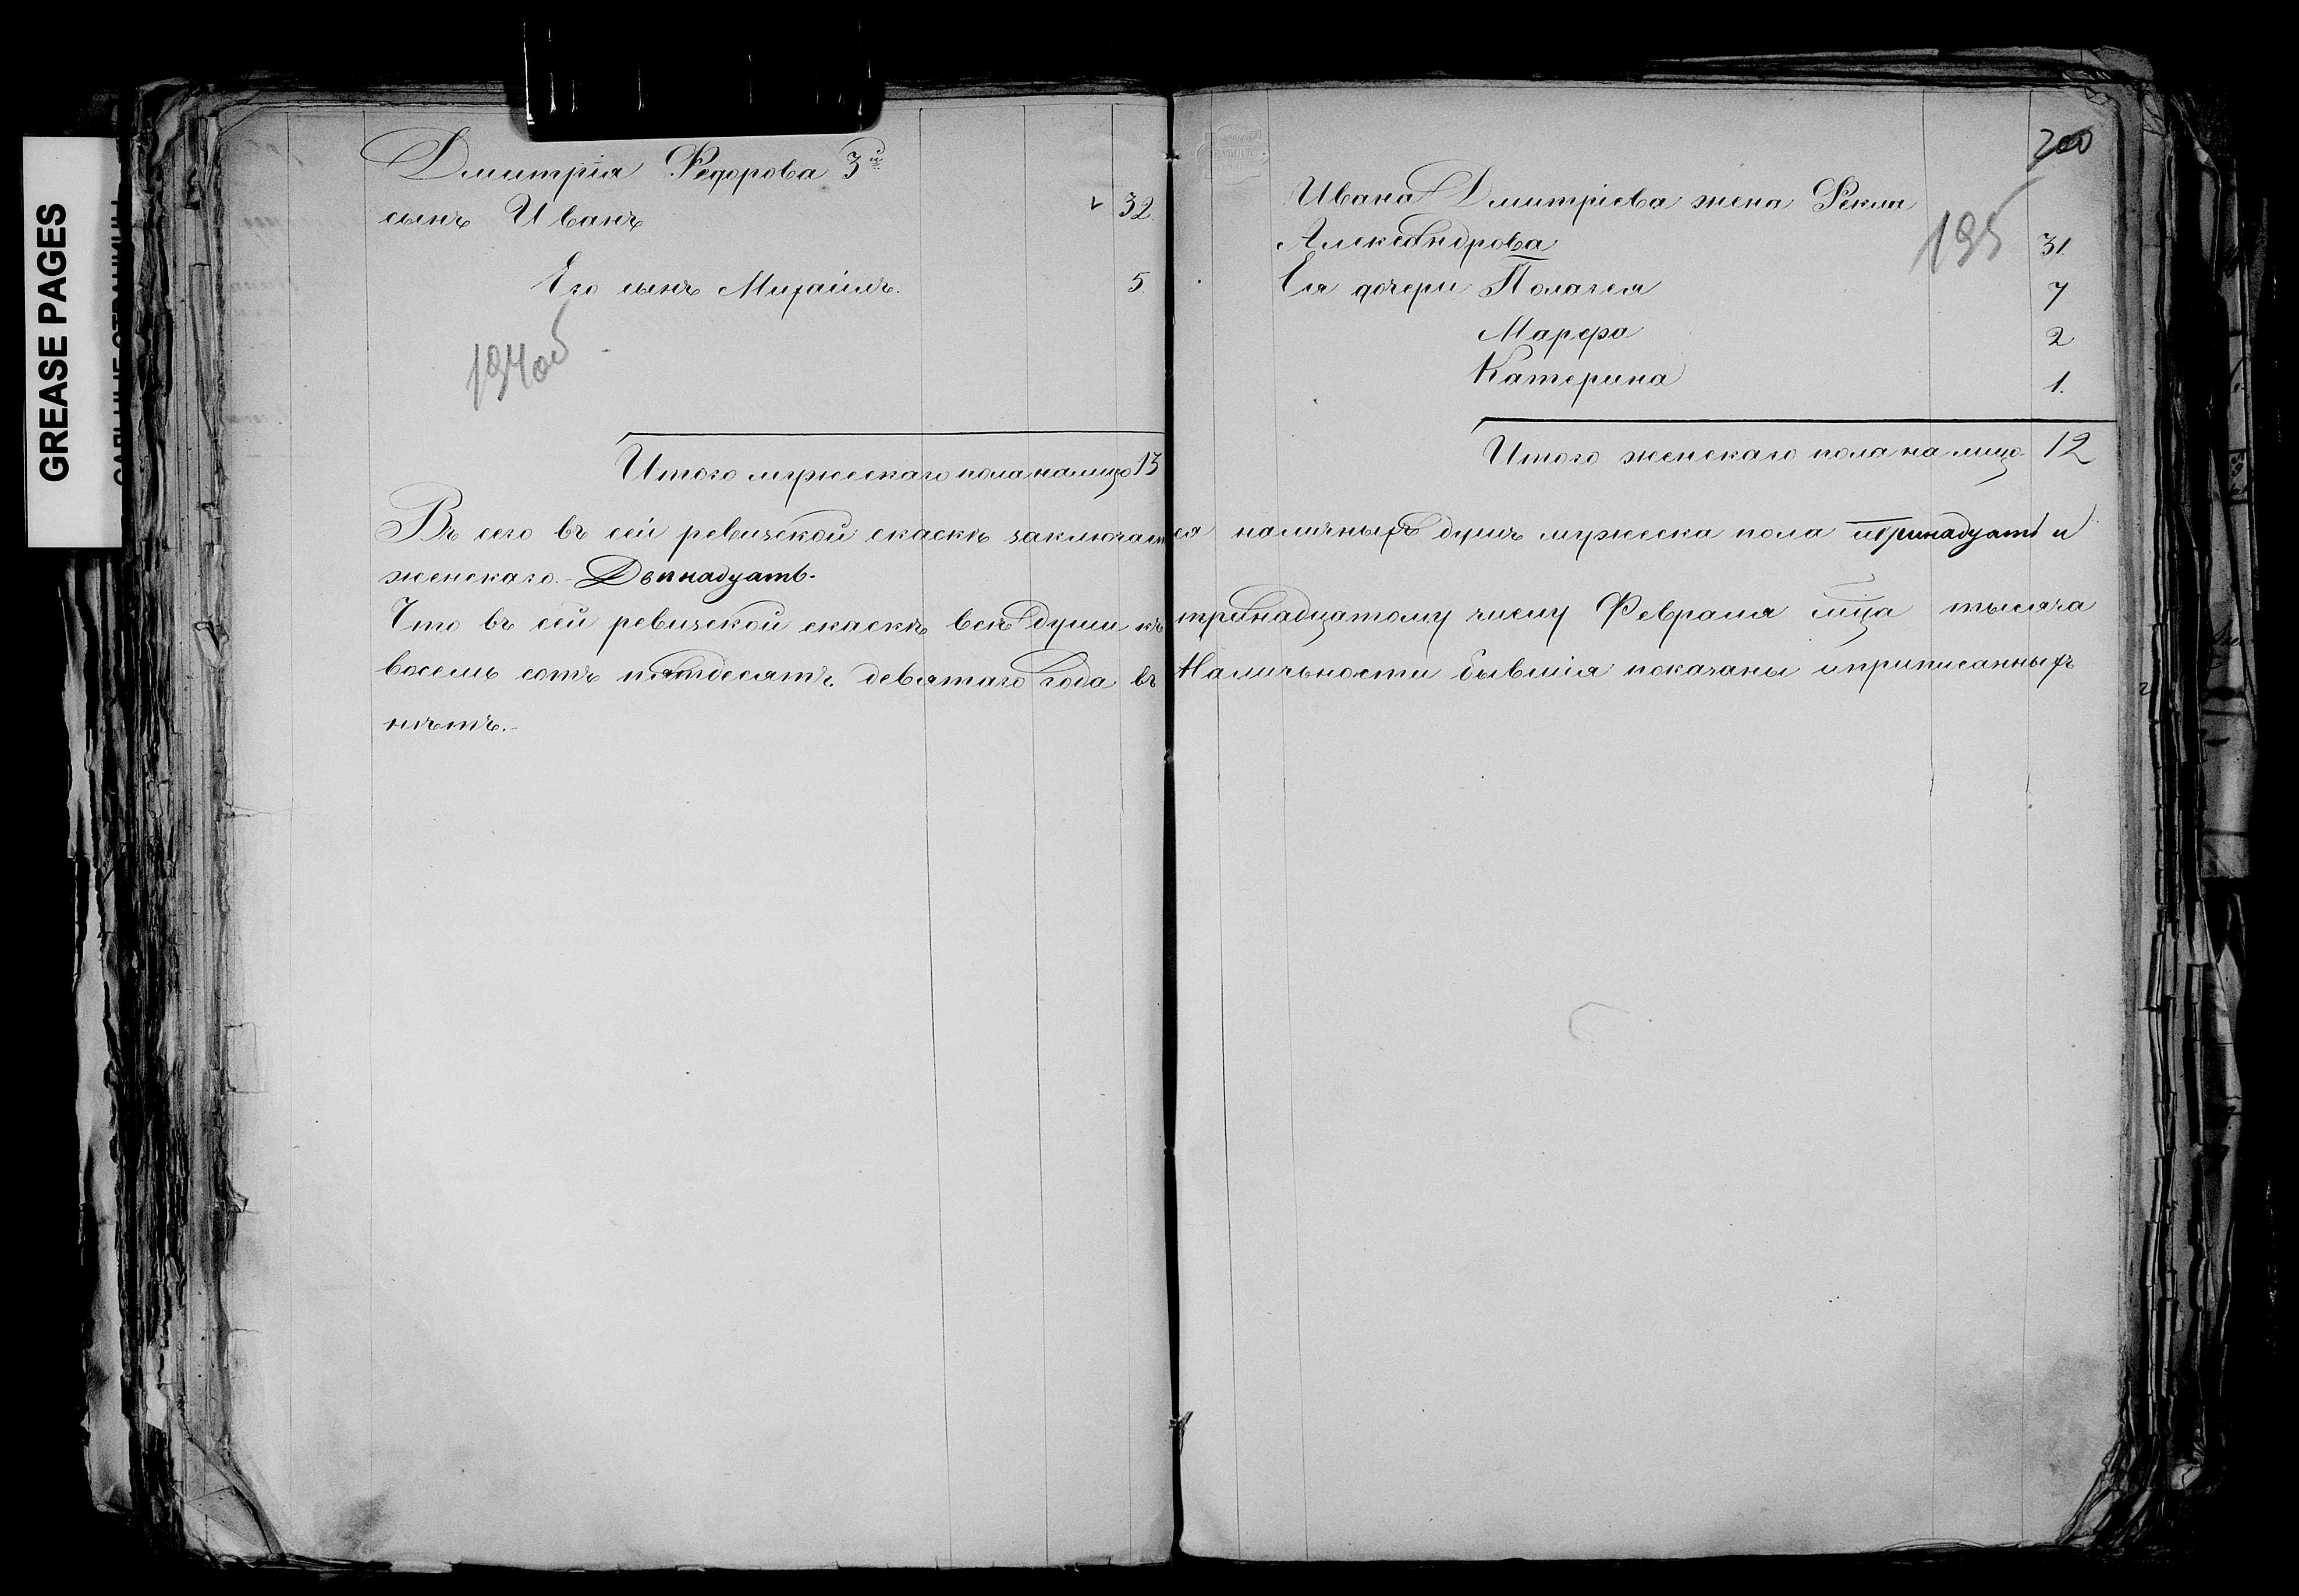 GREASE PAGES
Дмитрія Ѳедорова 3й
сынъ Иванъ 32.
Его сынъ Михаилъ. 5.
194об
Итого мужескаго пола налицо 13
200
195
Ивана Дмитріева жена Ѳекла
Александрова 31.
Ея дочери Полагея 7
Марѳа 2
Катерина 1.
Итого женскаго пола на лицо 12
Въ сего въ сей ревизской скаскѣ заключается наличныхъ душъ мужеска пола тринадцать и
женскаго. - Двѣнадцать.
Что въ сей ревизской скаскѣ всѣ души къ тринадцатому числу Февраля мца тысяча
восемь сотъ пятдесятъ девятаго года въ Наличьности бывшія показаны иприписанныхъ
нѣтъ.-